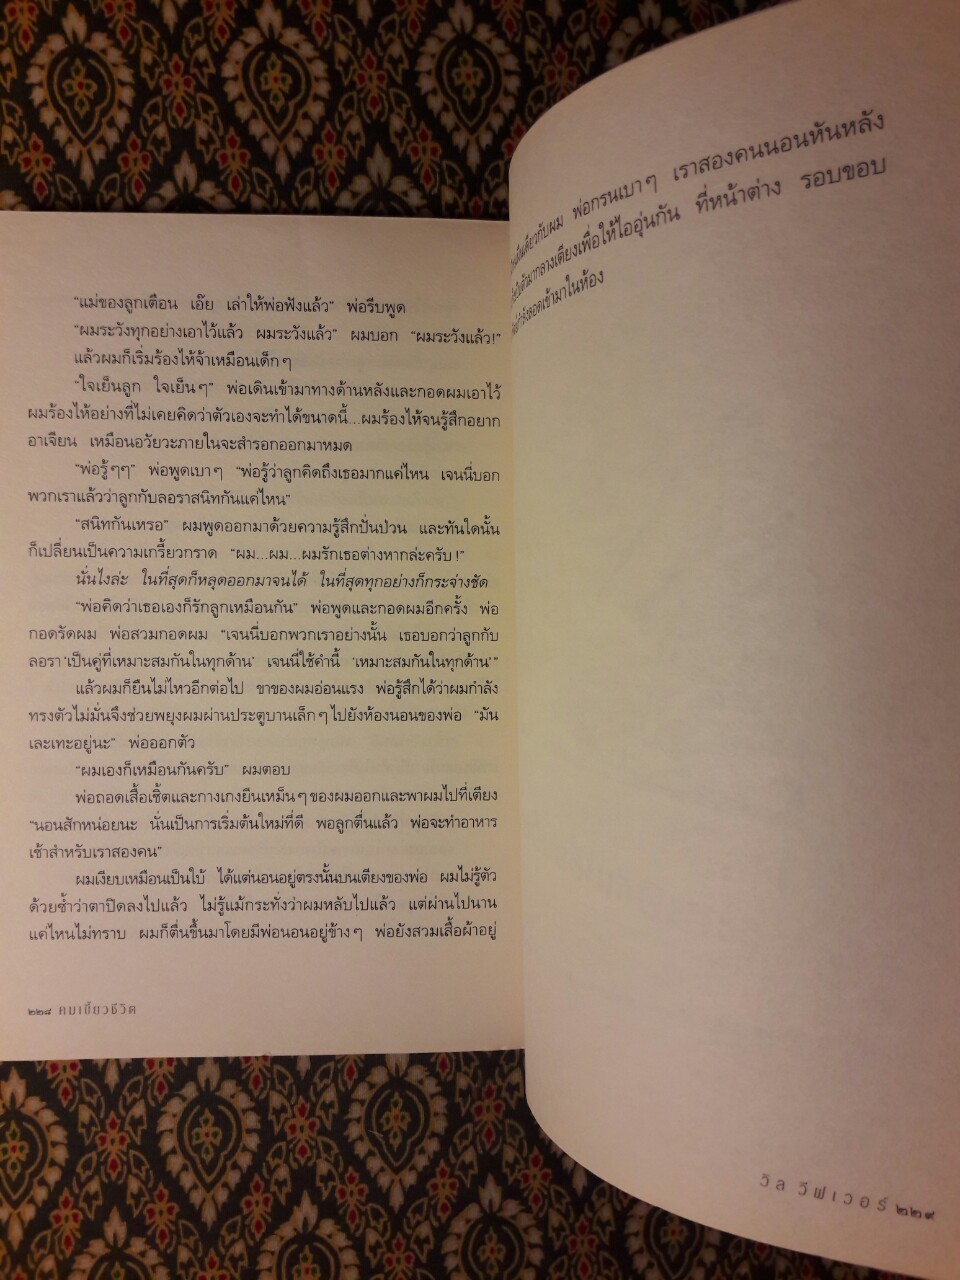 "แม่ของลูกเตือน เอ๊ย เล่าให้พ่อฟังแล้ว" พ่อรีบพูด
"ผมระวังทุกอย่างเอาไว้แล้ว ผมระวังแล้ว" ผมบอก "ผมระวังแล้ว!"
แล้วผมก็เริ่มร้องไห้จ้าเหมือนเด็กๆ
"ใจเย็นลูก ใจเย็นๆ" พ่อเดินเข้ามาทางด้านหลังและกอดผมเอาไว้
ผมร้องไห้อย่างที่ไม่เคยคิดว่าตัวเองจะทำได้ขนาดนี้...ผมร้องไห้จนรู้สึกอยาก
อาเจียน เหมือนอวัยวะภายในจะสำรอกออกมาหมด
"พ่อรู้ๆๆ" พ่อพูดเบาๆ "พ่อรู้ว่าลูกคิดถึงเธอมากแค่ไหน เจนนี่บอก
พวกเราแล้วว่าลูกกับลอราสนิทกันแค่ไหน"
"สนิทกันเหรอ" ผมพูดออกมาด้วยความรู้สึกปั่นป่วน และทันใดนั้น
ก็เปลี่ยนเป็นความเกรี้ยวกราด "ผม...ผม...ผมรักเธอต่างหากล่ะครับ!"
นั่นไงล่ะ ในที่สุดก็หลุดออกมาจนได้ ในที่สุดทุกอย่างก็กระจ่างชัด
"พ่อคิดว่าเธอเองก็รักลูกเหมือนกัน" พ่อพูดและกอดผมอีกครั้ง พ่อ
กอดรัดผม พ่อสวมกอดผม "เจนนี่บอกพวกเราอย่างนั้น เธอบอกว่าลูกกับ
ลอรา 'เป็นคู่ที่เหมาะสมกันในทุกด้าน' เจนนี่ใช้คำนี้ 'เหมาะสมกันในทุกด้าน'"
แล้วผมก็ยืนไม่ไหวอีกต่อไป ขาของผมอ่อนแรง พ่อรู้สึกได้ว่าผมกำลัง
ทรงตัวไม่มั่นจึงช่วยพยุงผมผ่านประตูบานเล็กๆ ไปยังห้องนอนของพ่อ "มัน
เละเทะอยู่นะ" พ่อออกตัว
"ผมเองก็เหมือนกันครับ" ผมตอบ
พ่อถอดเสื้อเชิ้ตและกางเกงยีนเหม็นๆ ของผมออกและพาผมไปที่เตียง
"นอนสักหน่อยนะ นั่นเป็นการเริ่มต้นใหม่ที่ดี พอลูกตื่นแล้ว พ่อจะทำอาหาร
เช้าสำหรับเราสองคน"
ผมเงียบเหมือนเป็นใบ้ ได้แต่นอนอยู่ตรงนั้นบนเตียงของพ่อ ผมไม่รู้ตัว
ด้วยซ้ำว่าตาปิดลงไปแล้ว ไม่รู้แม้กระทั่งว่าผมหลับไปแล้ว แต่ผ่านไปนาน
แค่ไหนไม่ทราบ ผมก็ตื่นขึ้นมาโดยมีพ่อนอนอยู่ข้างๆ พ่อยังสวมเสื้อผ้าอยู่
๒๒๘ คมเขี้ยวชีวิต
เดียวกับผม พ่อกรนเบาๆ เราสองคนนอนหันหลัง
มากลางเตียงเพื่อให้ไออุ่นกัน ที่หน้าต่าง รอบขอบ
กำลังลอดเข้ามาในห้อง
วิล วีฟเวอร์ ๒๒๙